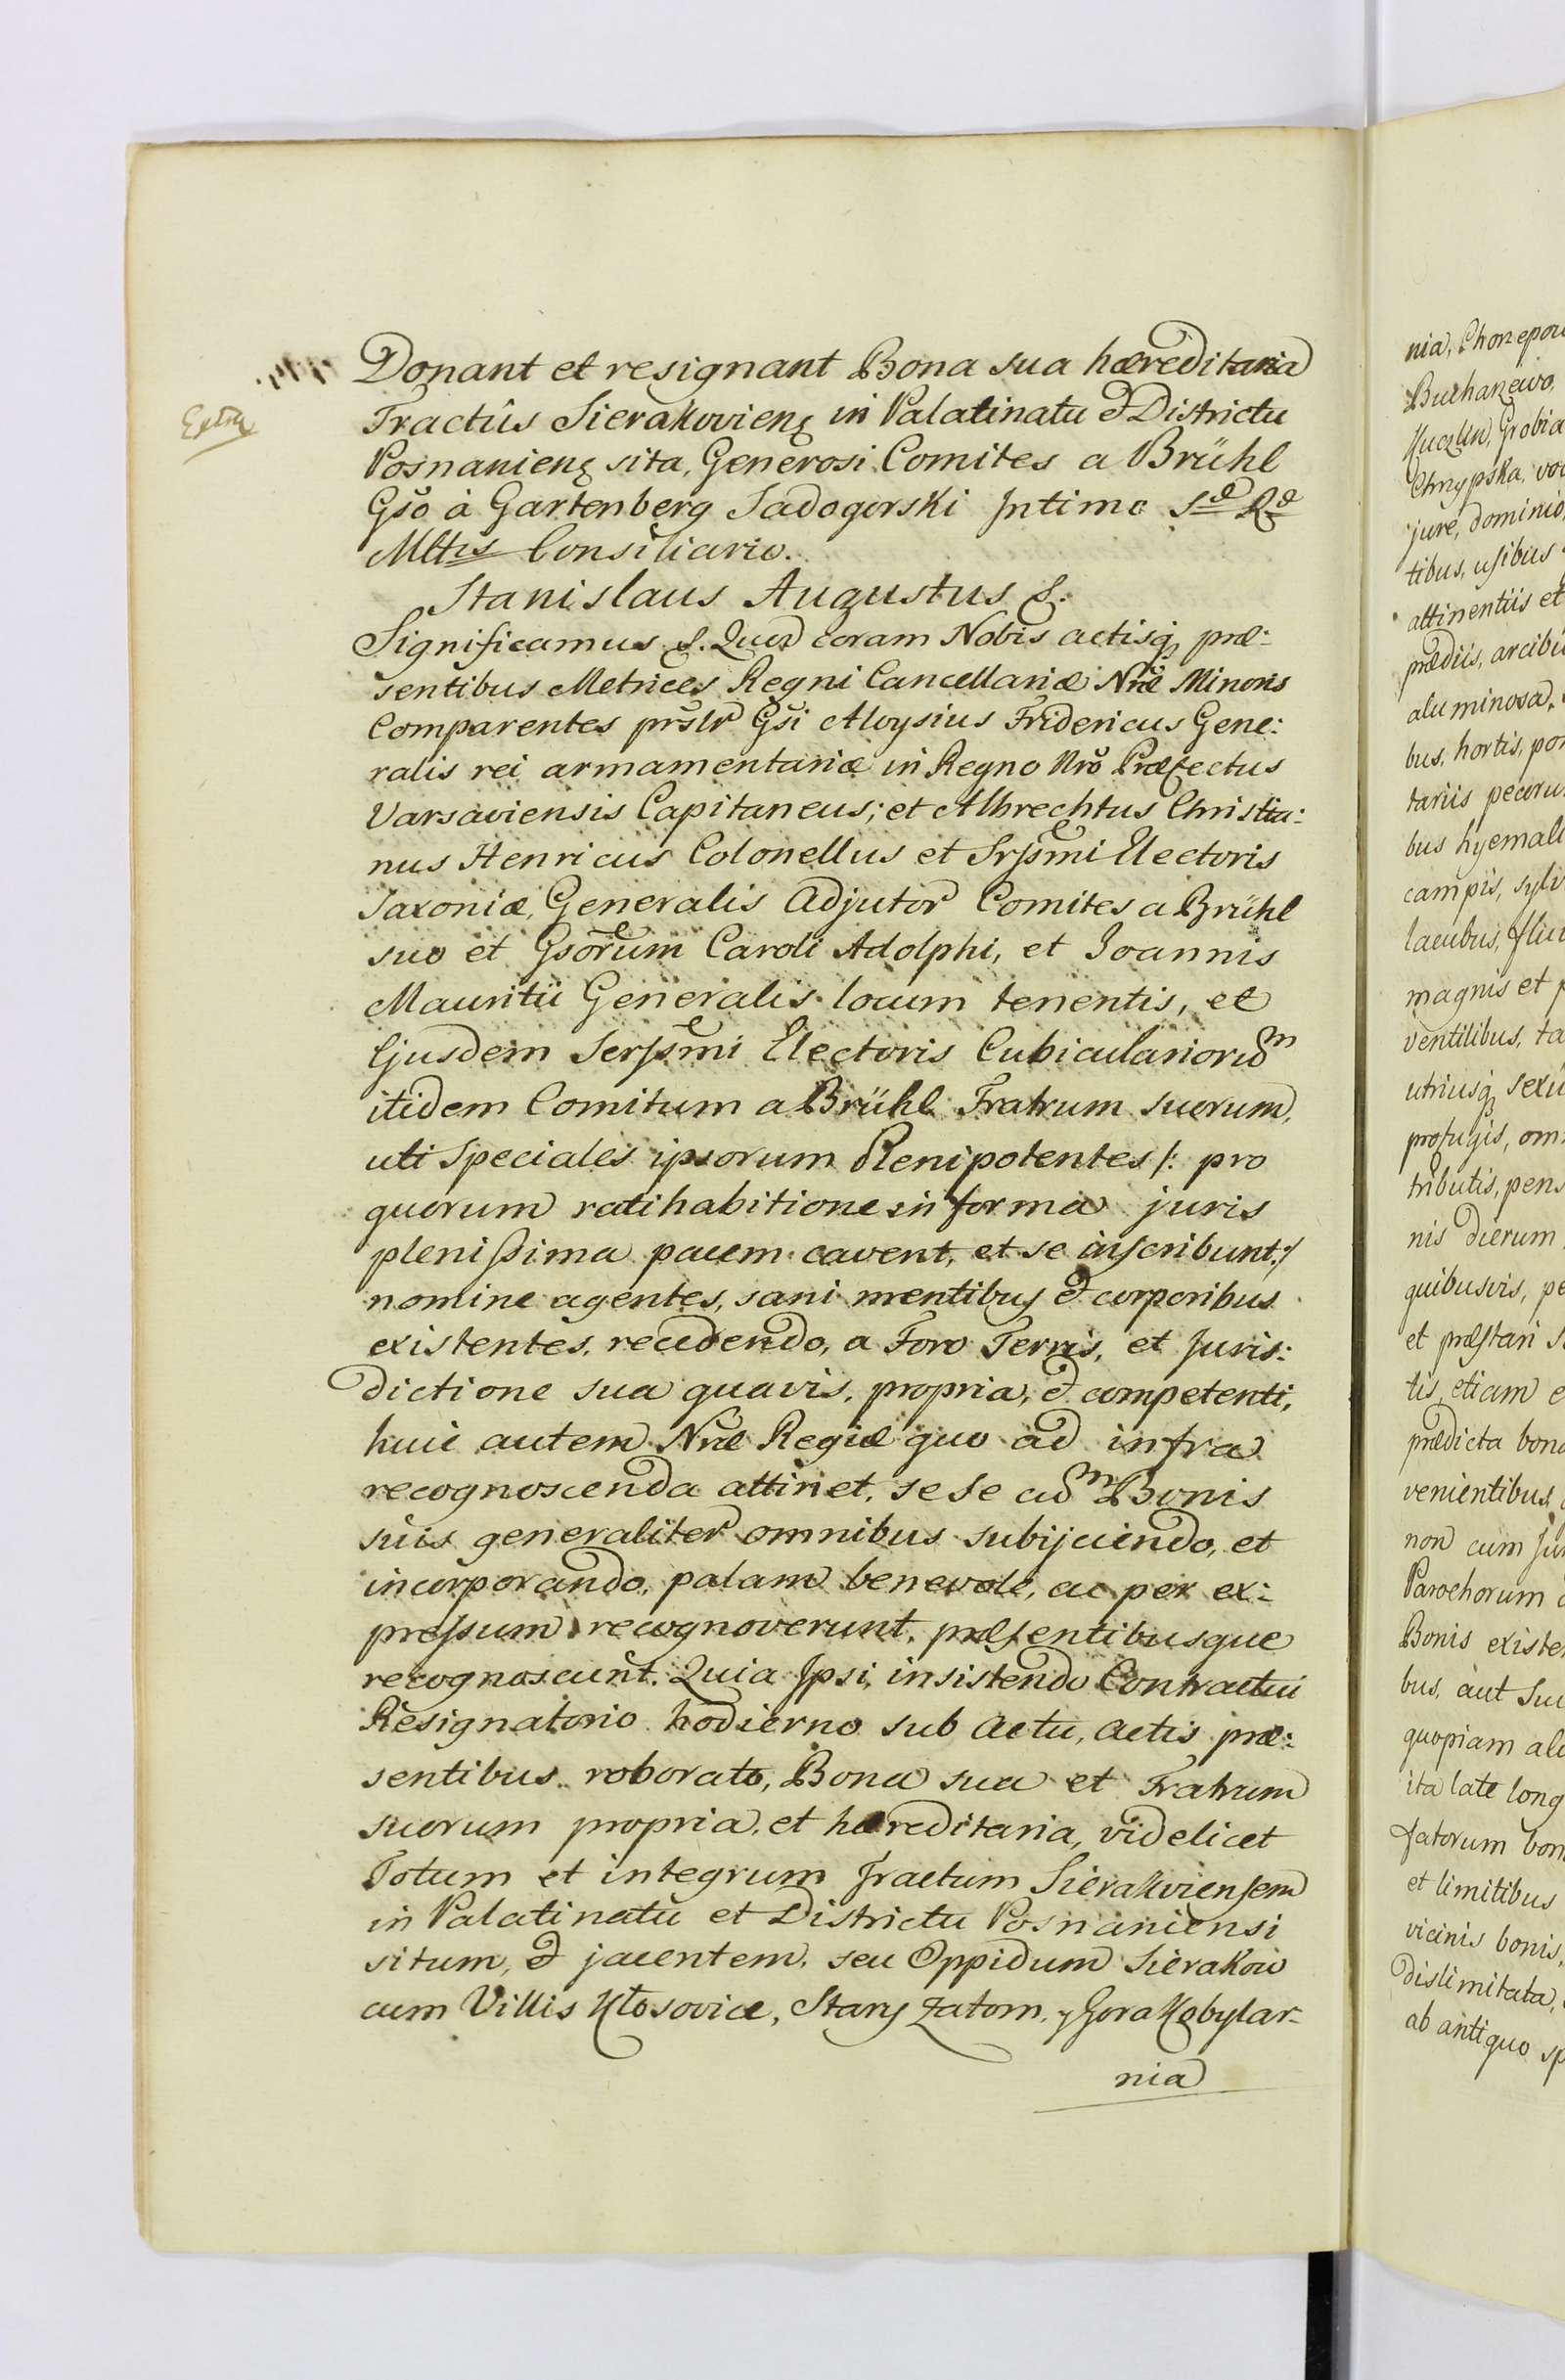 Donant et resignant Bona sua hæreditaria
Extra
Tractûs Sierakovienȩ in Palatinatu & Districtu
Posnanienȩ sita, Generosi Comites a Brühl
Gšo à Gartenberg Sadogorski Intimo Sæ Ræ
Mltis Consiliario.
Stanislaus Augustus &.
Significamus &. Quod coram Nobis actisq præ:
sentibus Metrices Regni Cancellariæ Nræ Minoris
Comparentes prslr Gsi Aloysius Fridericus Gene:
ralis rei armamentariæ in Regno Nro Præfectus
Varsaviensis Capitaneus; et Albrechtus Christia:
nus Henricus Colonellus et Srssmi Electoris
Saxoniæ, Generalis Adjutor Comites a Brühl
suo et Gsorum Caroli Adolphi, et Joannis
Mauritii Generalis locum tenentis, et
Ejusdem Serssmi Electoris Cubiculariorum
itidem Comitum a Brühl Fratrum suorum,
uti Speciales ipsorum Plenipotentes /: pro
quorum ratihabitione in forma juris
plenissima pacem cavent, et se inscribunt :/
nomine agentes, sani mentibus & corporibus
existentes, recedendo, a Foro Terris, et Juris:
dictione sua quavis, propria, & competenti,
huic autem Nræ Regiæ quo ad infra
recognoscenda attinet, sese cum Bonis
suis generaliter omnibus subijciendo, et
incorporando, palam benevole, ac per ex:
pressum recognoverunt, præsentibusque
recognoscunt. Quia Ipsi, insistendo Contractui
Resignatorio hodierno sub actu, actis præ:
sentibus roborato, Bona sua et Fratrum
suorum propria, et hæreditaria, videlicet
Totum et integrum Tractum Sierakoviensem
in Palatinatu et Districtu Posnaniensi
situm, & jacentem, seu Oppidum Sierakow
cum Villis Kłosovice, Stary Zatom, y Gora Kobylar-
nia
nia,
Buchanzewo,
Kuczlin, Grobia
Chrzypska,
jure, dominio,
tibus, usibus
attinentiis et
prædiis,
aluminosa,
bus, hortis,
tariis
bus
campis,
lacubus,
magnis et
ventilibus,
utriusq sexu
profugis,
tributis,
nis dierum
quibusvis,
et præstari
tis, etiam
prædicta
venientibus
non cum
Parochorum
Bonis
bus, aut
quopiam
ita late
fatorum
et limitibus
vicinis bonis,
dislimitata,
ab antiquo